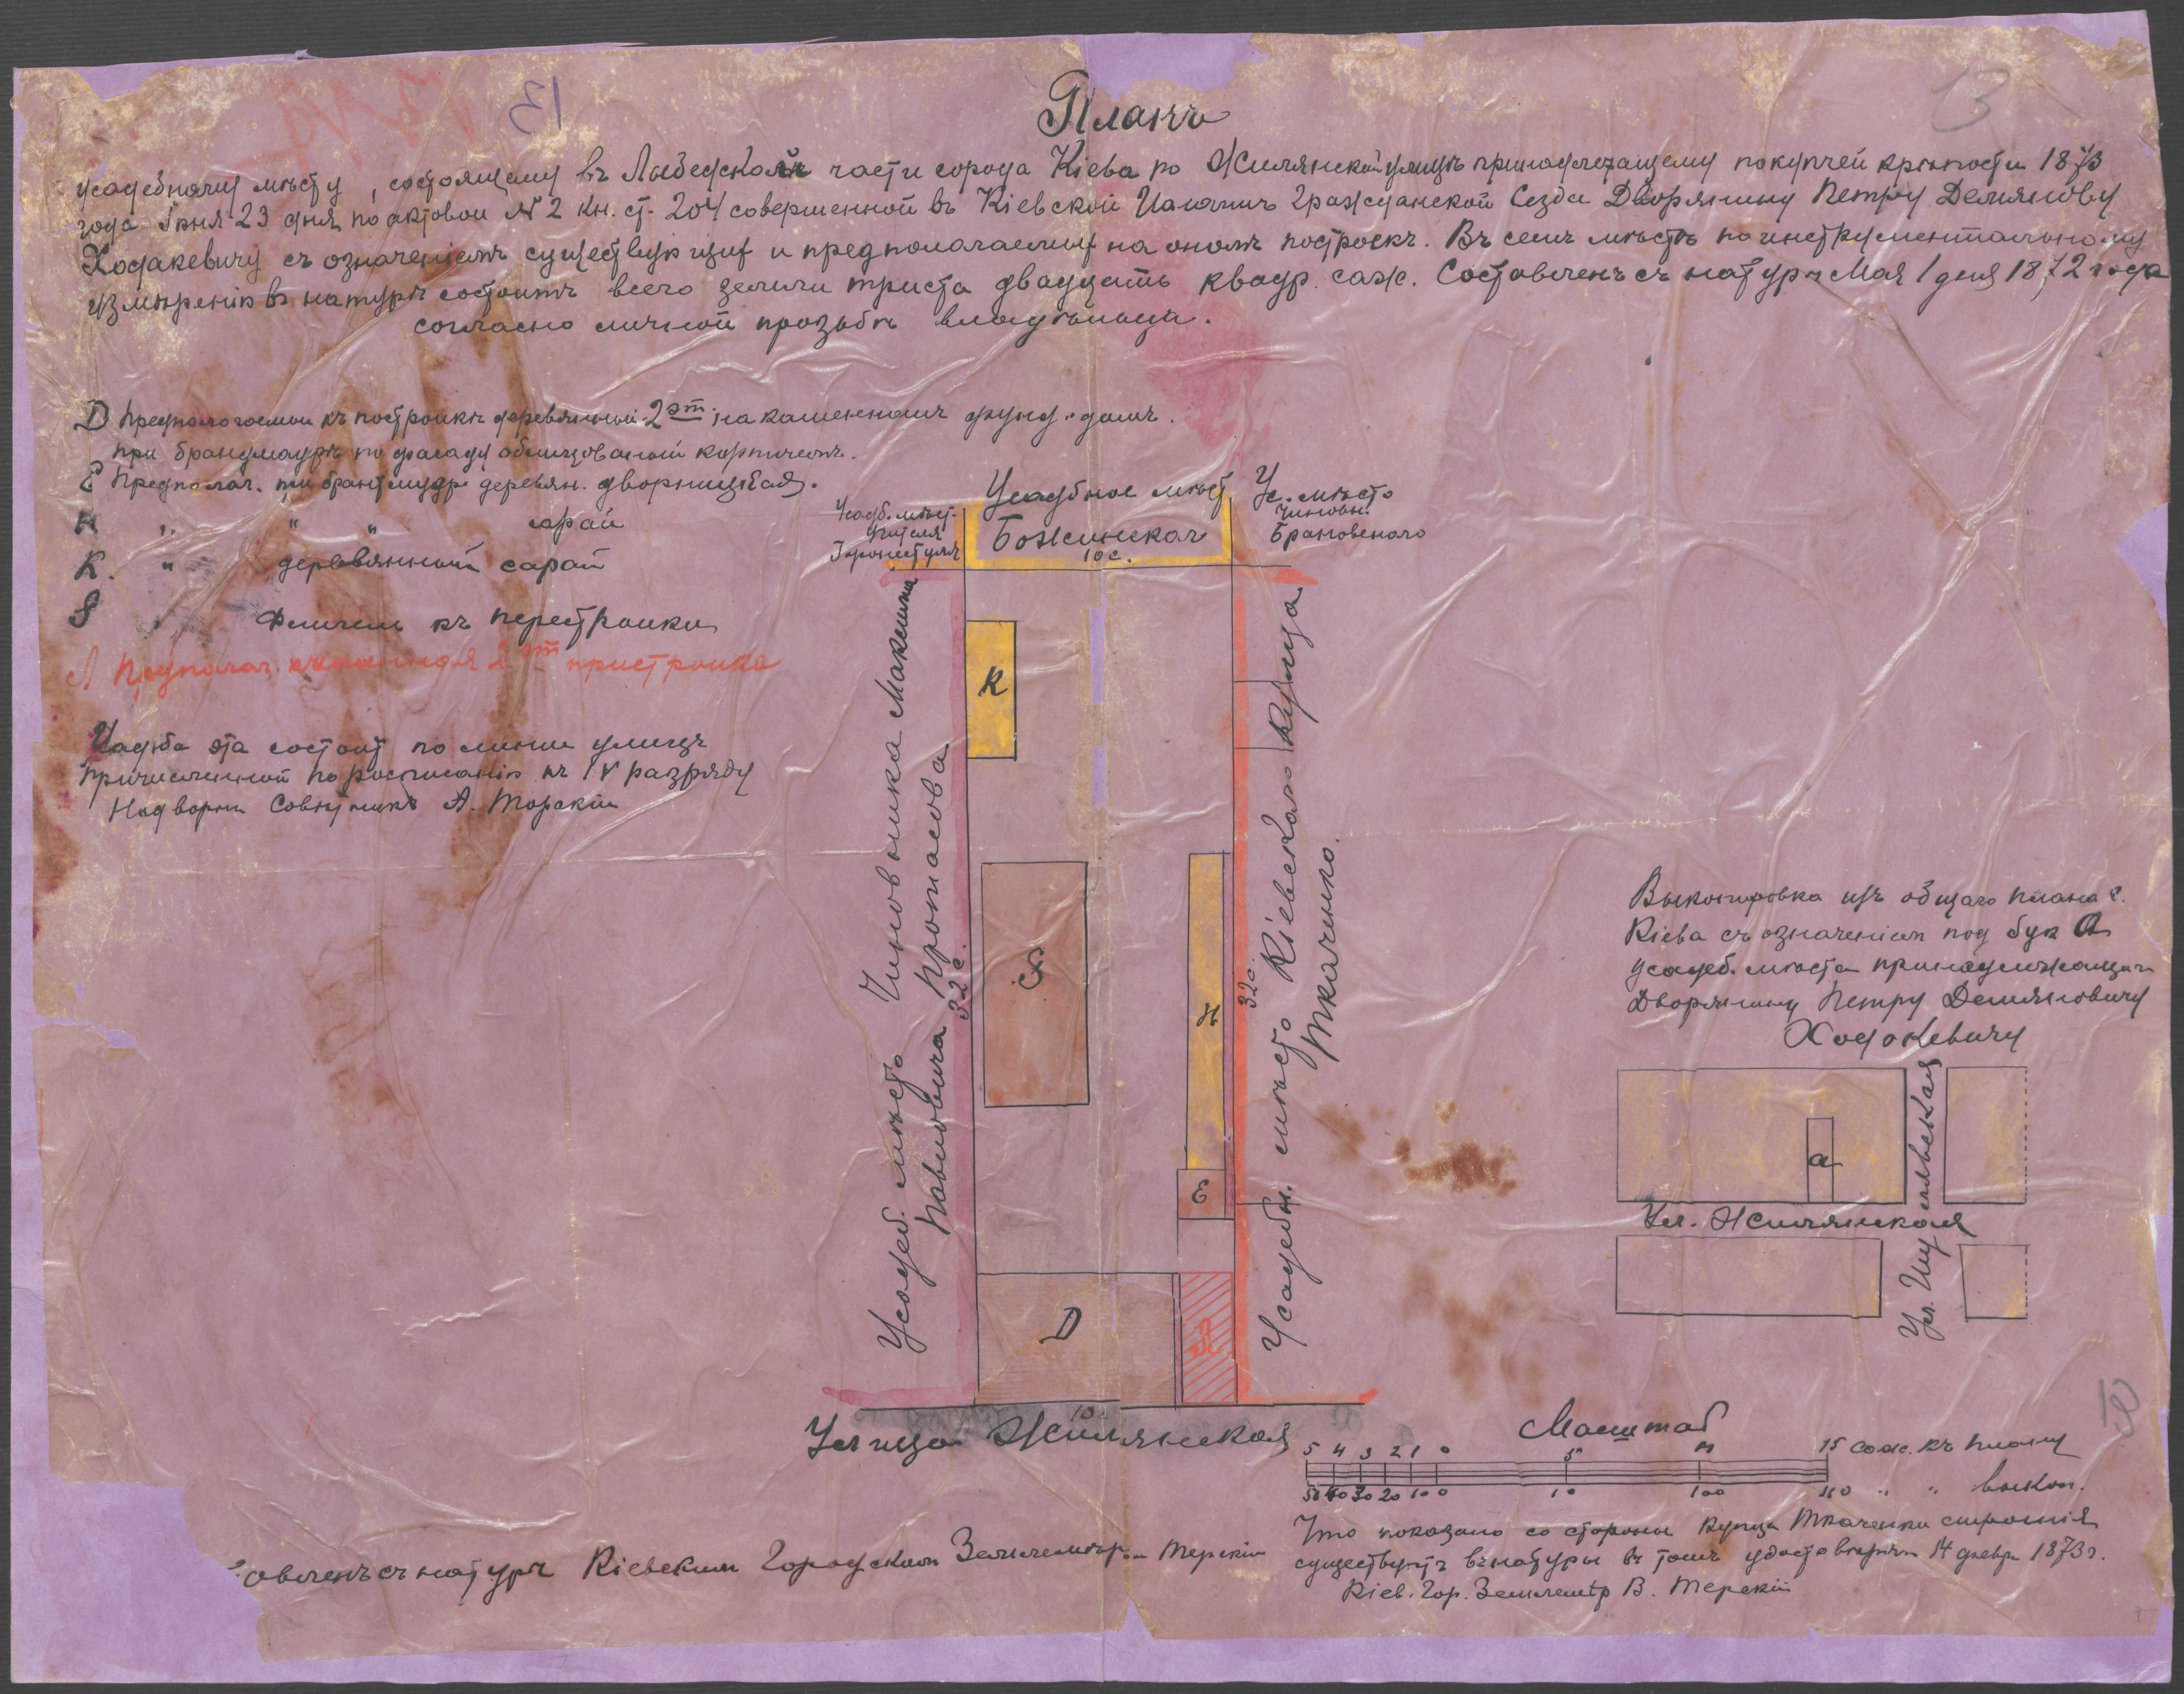 Планъ
усадебному мѣсту, состоящему въ Лыбедской части города Кіева по Жилянской улицѣ принадлежащему по купчей крѣпости 1873
года Іюня 23 дня по актовой № 2 кн. ст. 204 совершенной въ Кіевской Палатѣ Гражданской Дворянину Петру Демянову
Ходакевичу съ означеніемъ существующихъ и предполагаемыхъ на ономъ построекъ. Въ семъ мѣстѣ по инструментальному
измѣренію въ натурѣ состоитъ всего земли триста двадцать квадр. саж. Составленъ съ натуры Мая 1 дня 1872 года
согласно личной прозьбѣ владѣльца.
D Предпологаемый къ постройкѣ деревянный 2 эт. на каменномъ фунд. домъ.
при брандмауръ по фасаду облицованный кирпичемъ.
E Предполаг. при брантмуэръ деревян. дворницкая.
H " " " сарай
K. " деревянный сарай
Флигель къ перестройки
Л Предполаг. 2 эт пристройка
Усадьба эта состоитъ по линіи улицъ
причисленной по росписанію къ IV разряду
Надворный Совѣтникъ А. Торскій
Усадебное мѣст.
Божинскаг
10 с.
Усадб. мѣст.
Учителя
Ус. мѣсто
чиновн.
Брановскаго
Усадеб. мѣсто Чиновника Максима
Павловича Протасова
32 с.
K
F
H
E
D
Л
32 с.
Усадебн. мѣсто Кіевскаго купца
Ткаченко.
10
Улица Жилянская
Выкопировка изъ общаго плана г.
Кіева съ означеніемъ под бук А
усадеб. мѣста принадлежащаго
Дворянину Петру Демяновичу
Ходакевичу
а
Ул. Жилянская
Масштаб
5 4 3 2 1 0 5 10 15 саж. къ плану
50 40 30 20 10 0 100 " " выкоп.
Что показано со стороны купца Ткаченки строенія
существуютъ въ натуры въ томъ удостовѣряю 14 1873 г.
Кіев. Гор. Землемѣр В. Терскій
овленъ съ натуры Кіевским Городским Землемѣром Терскій
13
13